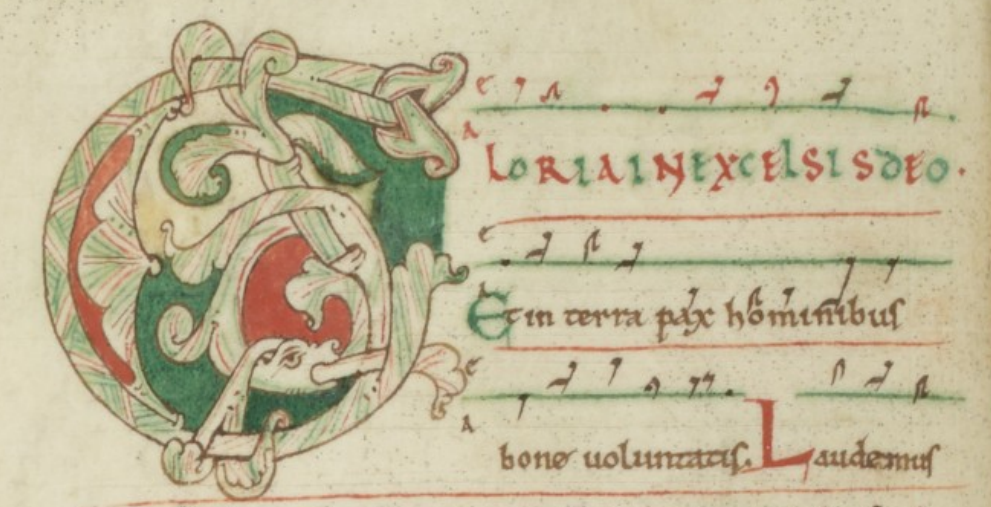 GLORIA IN EXCELSIS DEO.
Et in terra pax hominibus
bone uoluntatis. Laudamus